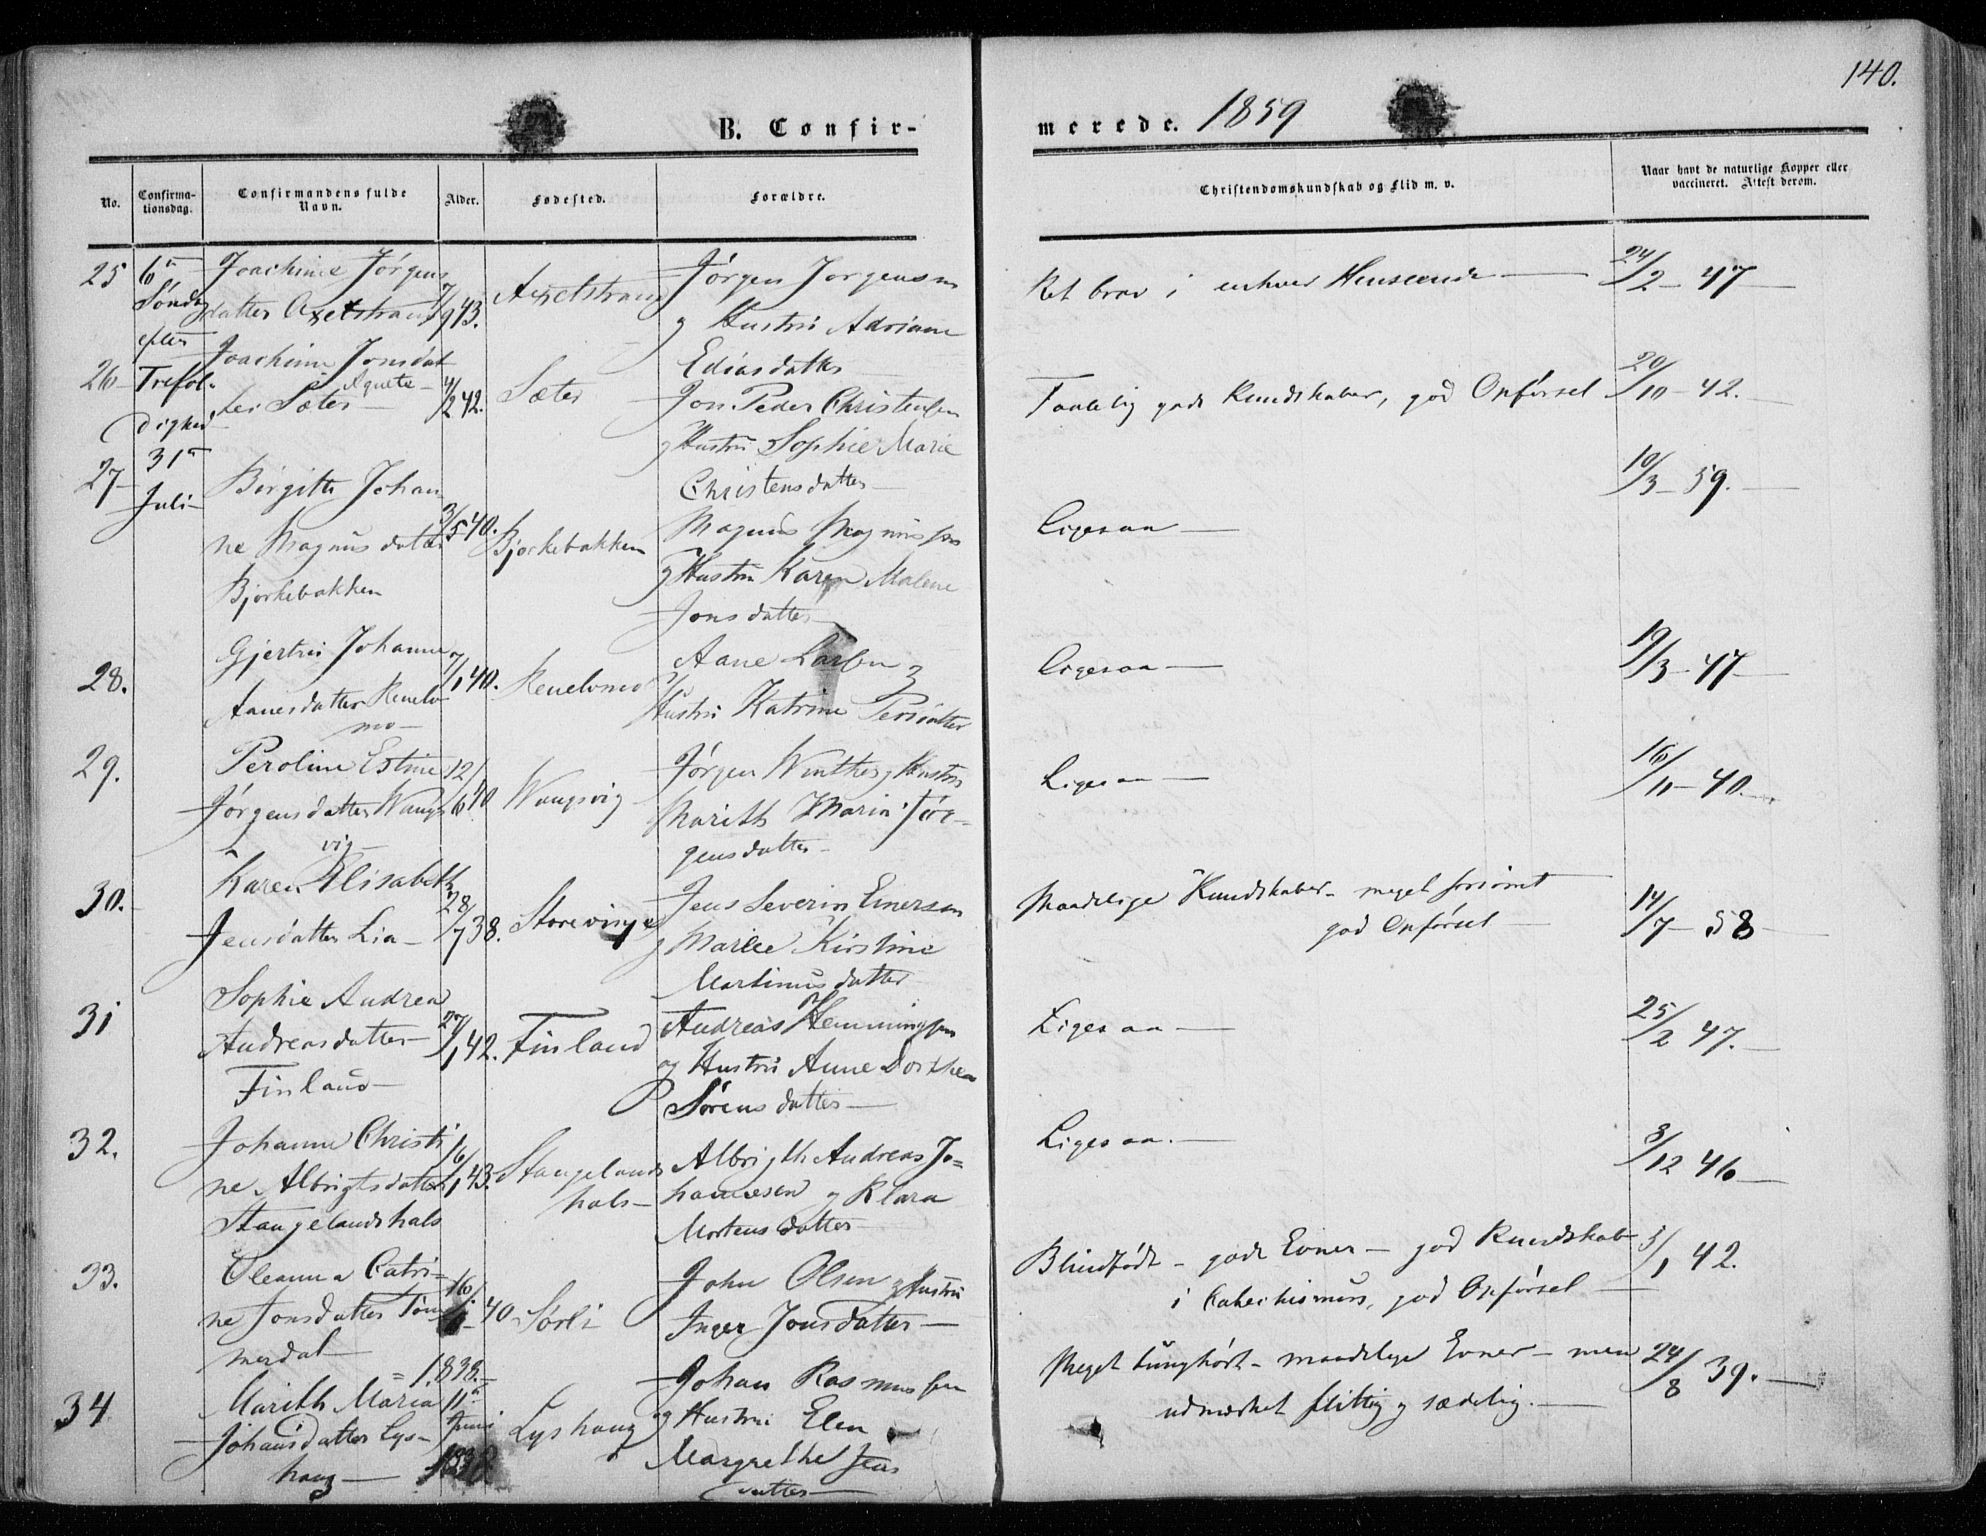 140.
B. Confir-
merede. 1859
No.
Confirma-
tionsdag.
Confirmandens fulde
Navn.
Alder.
Fødested.
Forældre.
Christendomskundskab og Flid m. v.
Naar havt de naturlige Kopper eller
vaccineret. Attest derom.
6te Søndag
efter
Trefol-
dighed
31te
Juli
25
Joachine Jørgens
datter Axelstrand
7/9 43.
Axelstrand
Jørgen Jørgensen
og Hustru Adriane
Ediasdatter
Ret brav i enhver Henseende
24/2 - 47
26
Joachime Jonsdat
Agnete
ter Sæter
4/2 42.
Sæter
Jon Peder Christensen
og Hustru Sophie Marie
Christensdatter
Taalelig gode Kundskaber, god Opførsel
20/10 - 42.
27
Birgitte Johan
ne Magnusdatter
Bjørkebakken
3/5 40.
Bjørkebakken
Magnus Magnussen
og Hustru Karen Malene
Jonsdatter
Ligesaa
10/3 - 59.
28.
Gjertru Johanne
Aanesdatter Renelv
mo
7/1 40.
Renelvmo
Aane Larsen og
Hustru Katrine Persdatter
Ligesaa
19/3 - 47
29.
Peroline Estine
Jørgensdatter Wangs
vig
12/6 40
Wangsvig
Jørgen Winther og Hustru
Marith Maria Jør-
gensdatter
Ligesaa
16/11 - 40.
30.
Karen Elisabeth
Jensdatter Lia
28/7 38.
Storevinge
Jens Severin Enersen
og Marie Kirstine
Martinusdatter
Maadelige Kundskaber - meget forsømt
god Opførsel
14/7 - 58
31
Sophie Andrea
Andreasdatter
Finland
27/1 42.
Finland
Andreas Hemmingsen
og Hustru Anne Dorthea
Sørensdatter
Ligesaa
25/2 47.
32.
Johanne Christi
ne Albrigtsdatter
Stangelandshals
16/1 43.
Stangelands
hals
Albrigth Andreas Jo=
hannesen og Klara
Mortensdatter
Ligesaa.
3/12 46
33.
Oleanna Catri-
ne Jonsdatter Tøm
merdal
40
Sørli
John Olsen og Hustru
Inger Jonsdatter
Blindfødt - gode Evner - god Kundskab
i Catechismus, god Opførsel
3/1 42.
34
= 1838.
Marith Maria
Johansdatter Lys-
haug
11te
Juni
1838
Lyshaug
Johan Rasmussen
og Hustru Elen
Margrethe Jens
datter
Meget tunghørt - maadelige Evner - men
udmærket flittig og sædelig.
24/8 39.